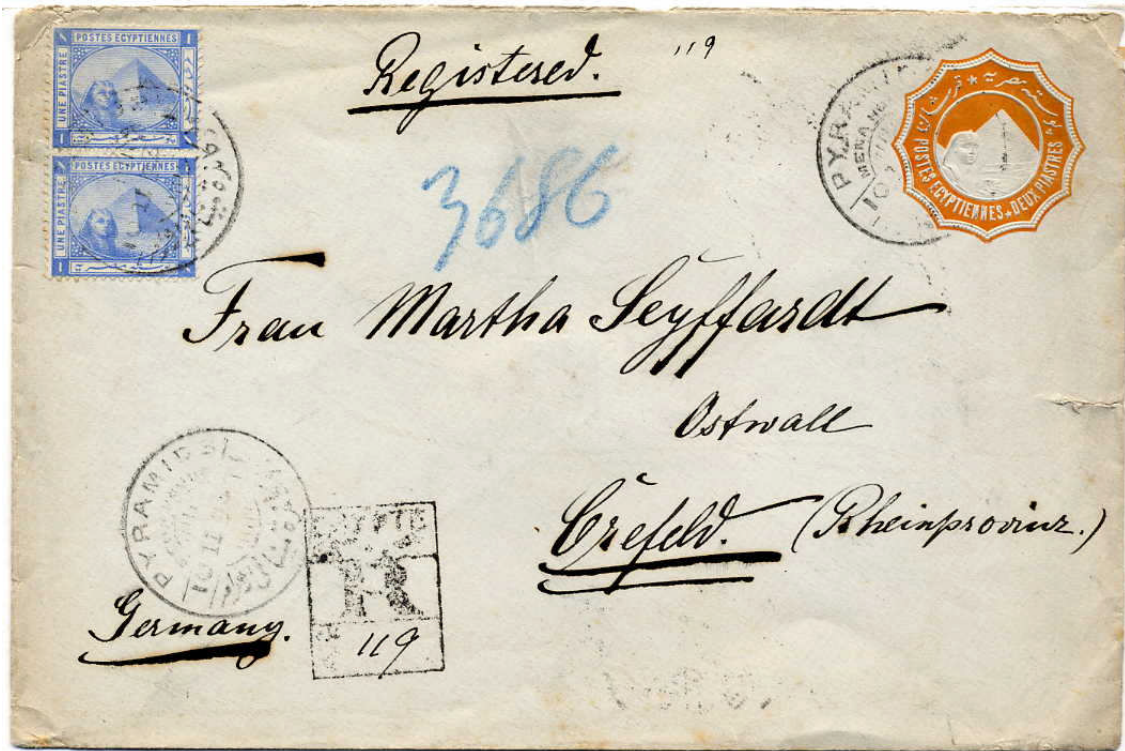 POSTES EGYPTIENNES
UNE PIASTRE
1 1
POSTES EGYPTIENNES
UNE PIASTRE
1
Registered. 119
PYRAMI
MENA
10
POSTES EGYPTIENNES DEUX PIASTRES
3686
Frau Martha Seyffardt
Ostwall
Crefeld. (Rheinprovinz.)
PYRAMIDS
10 II
Germany.
R
119